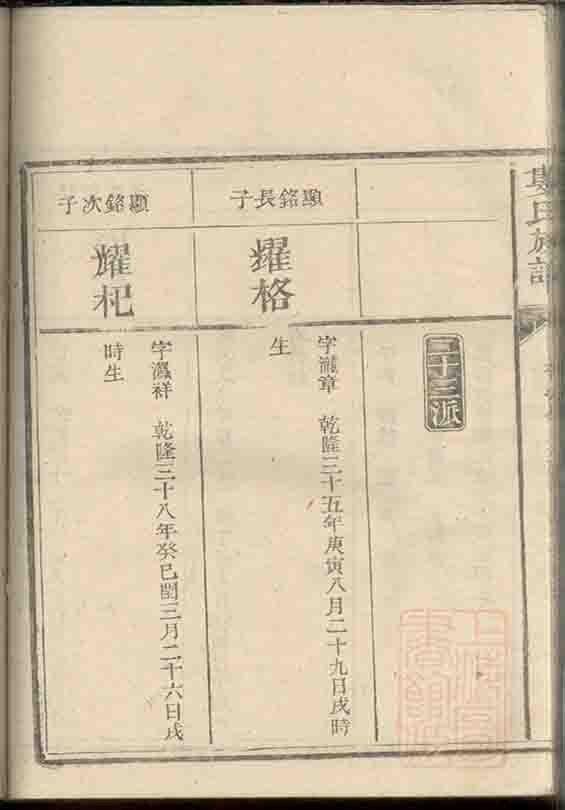 氏族譜
二十三派
顯銘長子
耀格
字瀛章 乾隆三十五年庚寅八月二十九日戌時
生
顯銘次子
耀杞
字瀛祥 乾隆三十八年癸巳閏三月二十六日戌
時生